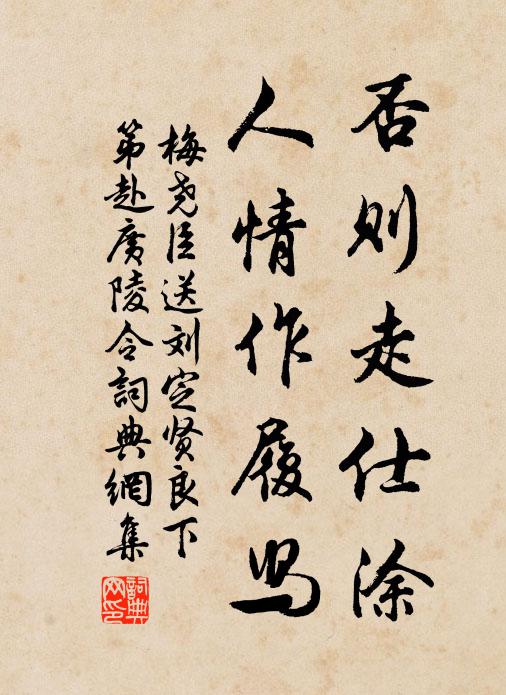 否则走仕涂
人情作履舄
梅尧臣送刘定贤良下
第赴廣陵令詞典網集
詞典
网印